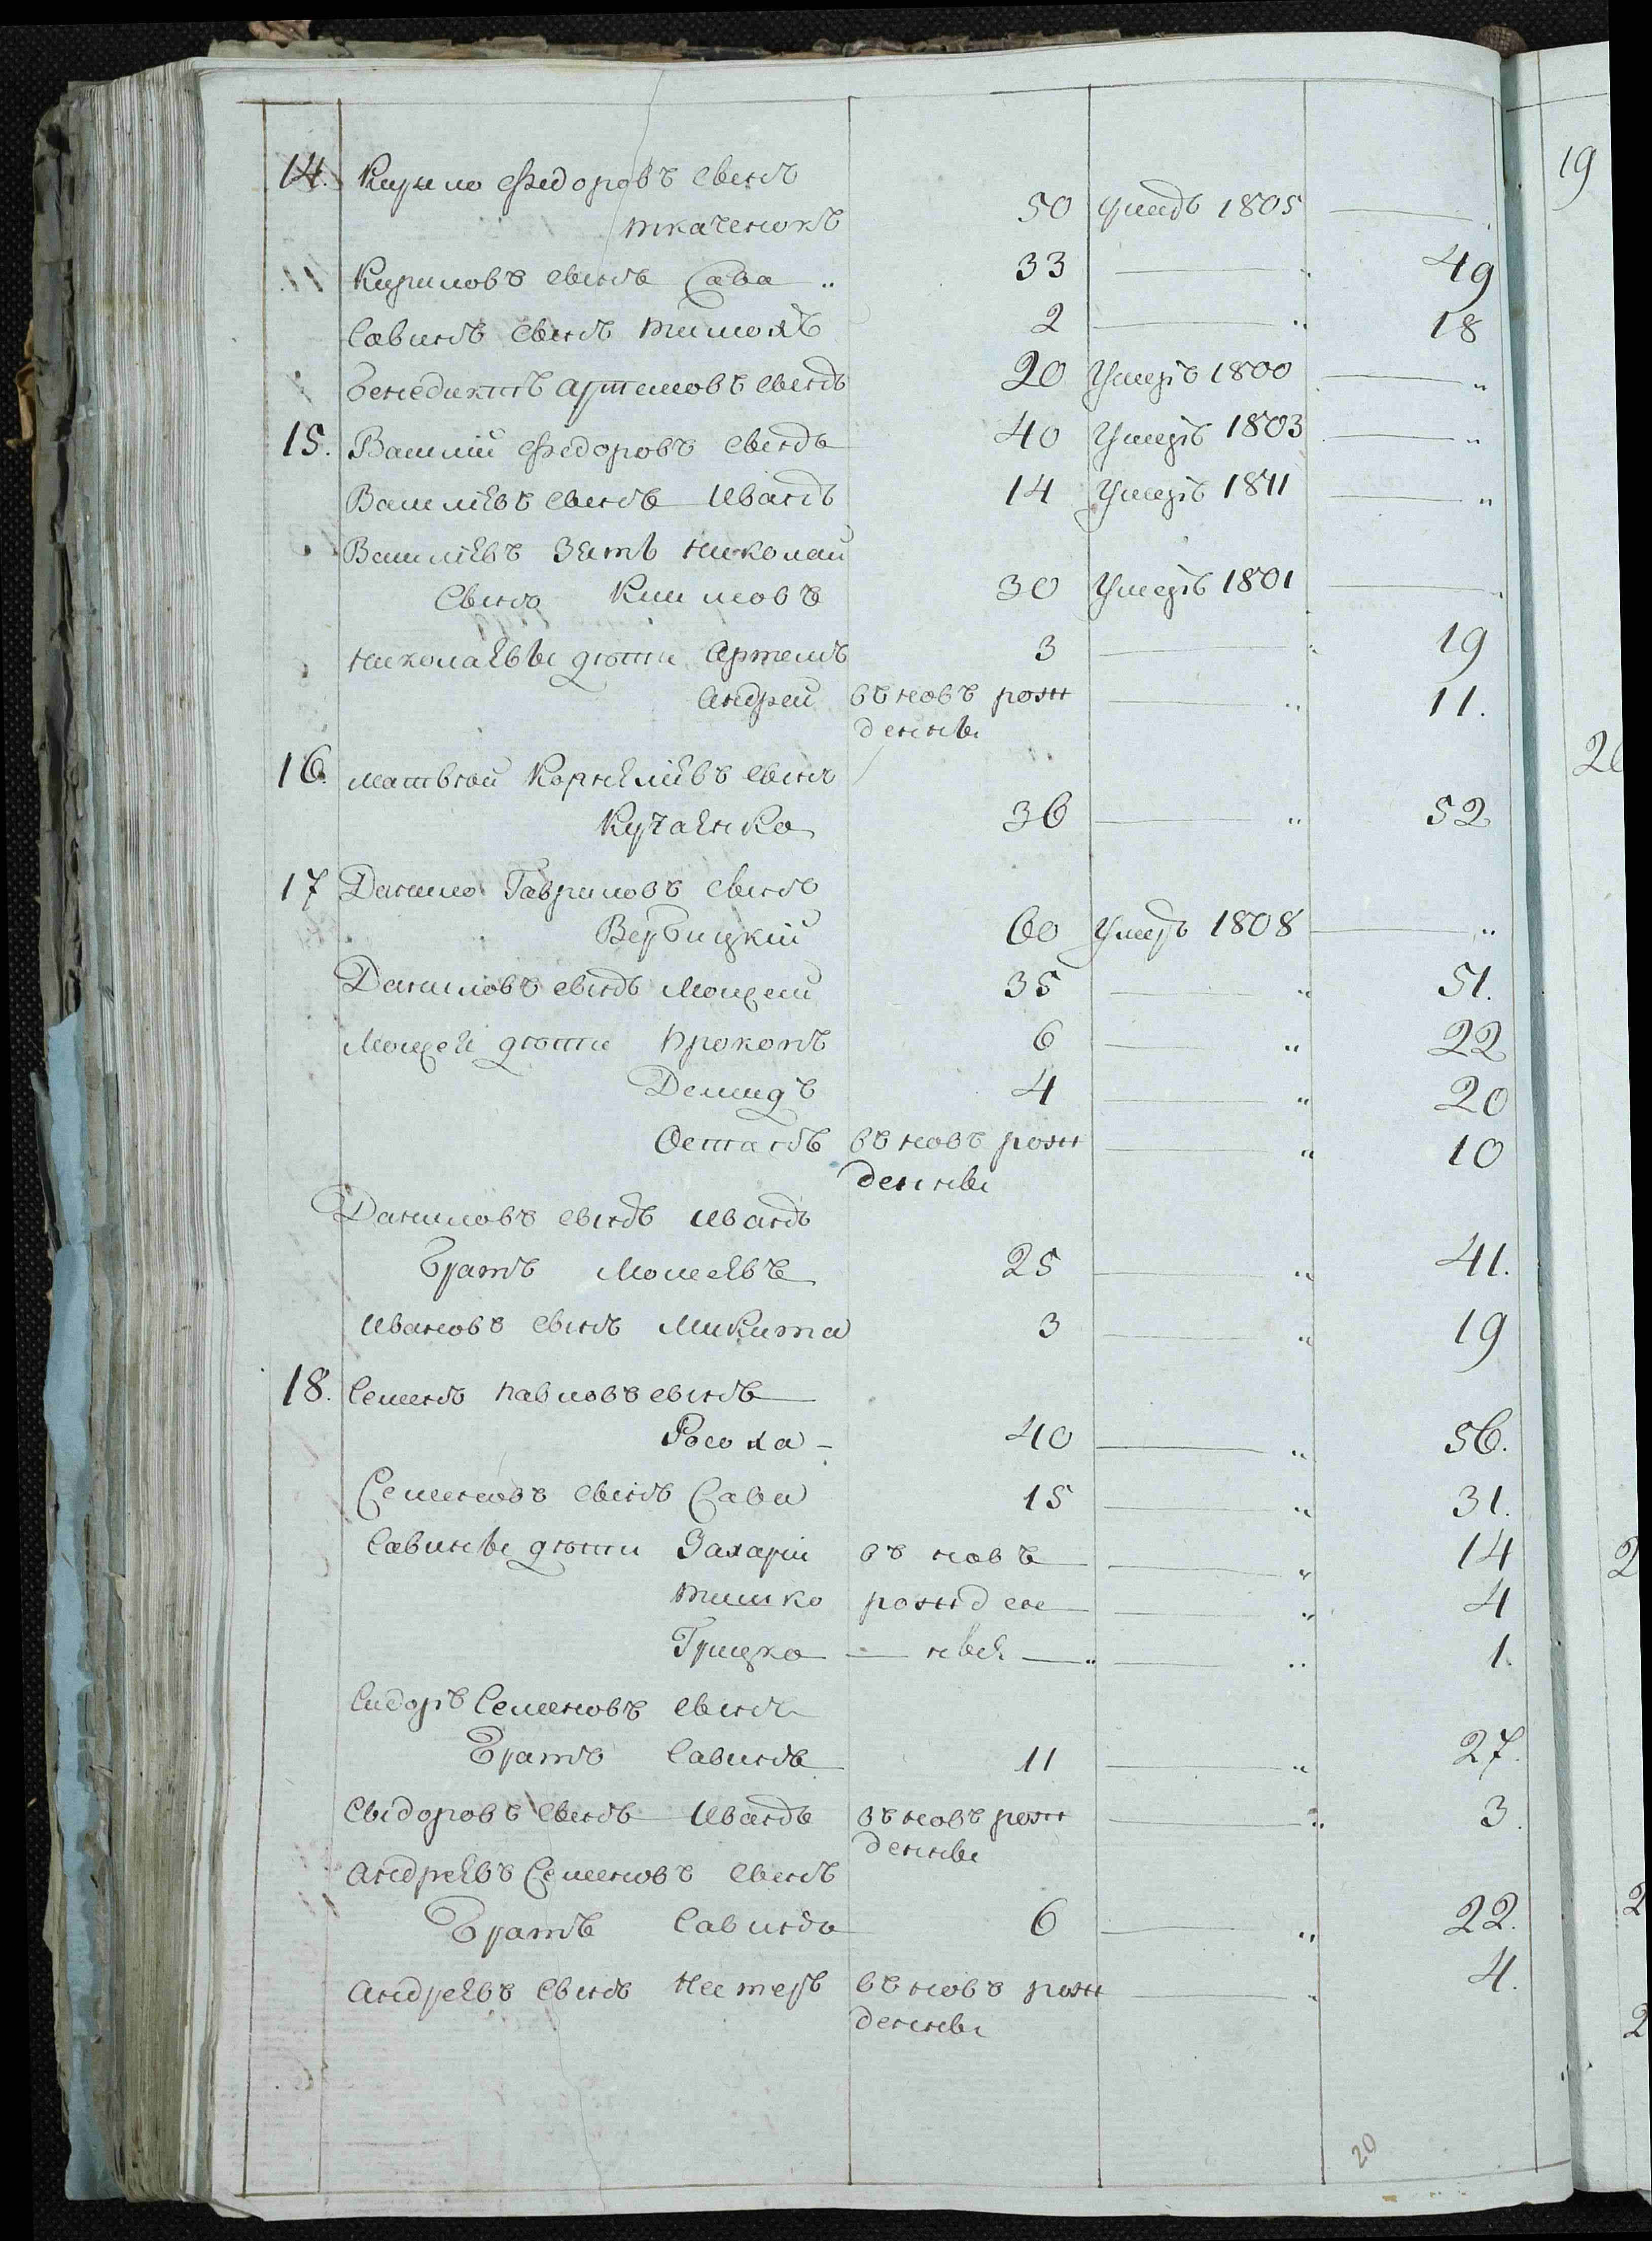 14. Кирило Федоровъ сынъ
ткаченокъ 50 умеръ 1805 —
Кириловъ сынъ Сава 33 — 49
Савинъ сынъ тимохъ 2 — 18
бенедиктъ артемовъ сынъ 20 Умеръ 1800 —
15. Василий Федоровъ сынъ 40 Умеръ 1803 —
Василѣвъ сынъ Иванъ 14 Умеръ 1811 —
Василѣвъ зять николай
сынъ Климовъ 30 Умеръ 1801 —
николаевы дѣти Артемъ 3 — 19
андрей въ новѣ рож — 11.
денны
16. матвѣй Корнелѣвъ сынъ
36 — 52
17 Данило Гавриловъ сынъ
Вербицкий 60 Умеръ 1808 —
Даниловъ сынъ Моисей 35 — 51.
дѣти прокопъ 6 — 22
Демидъ 4 — 20
Остапъ въ новѣ рож — 10
денны
Даниловъ сынъ Иванъ
братъ Моисеевъ 25 — 41.
Ивановъ сынъ Микита 3 — 19
18. Семенъ павловъ сынъ
Росоха 40 — 56.
Семеновъ сынъ Сава 15 — 31.
Савины дѣти Захарий въ новѣ — 14
тишко рожден — 4
Грицко — ные — 1.
Сидоръ Семеновъ сынъ
братъ Савинъ 11 — 27.
Сыдоровъ сынъ Иванъ въ новѣ рож — 3.
денны
Андреевъ Семеновъ сынъ
братъ Савинъ 6 — 22.
Андреевъ сынъ нестеръ въ новѣ рож — 4.
денны
20
19